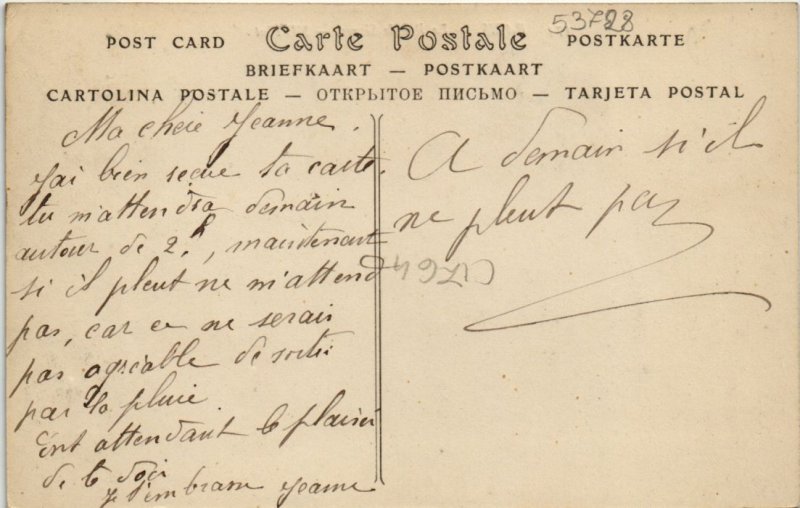 53788
POST CARD Carte Postale POSTKARTE
BRIEFKAART — POSTKAART
CARTOLINA POSTALE — ОТКРЫТОЕ ПИСЬМО — TARJETA POSTAL
Ma cheie Jeanne.
J'ai bien recue ta carte.
tu m'attendra demain
autour de 2h, maintenant
si il pleut ne m'attend
pas, car ce ne serais
pas agréable de sortir
par la pluie
Ent attendant le plaisir
de te
Je t'embrasse Jeanne
A demain si il
ne pleut pas